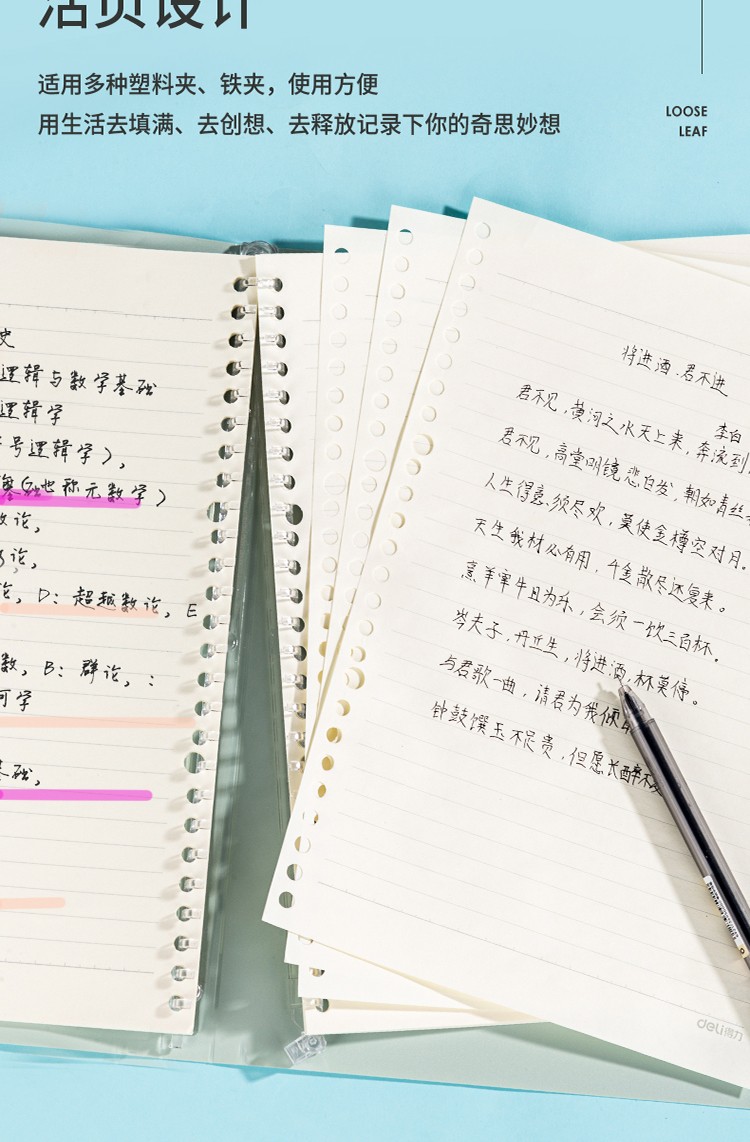 活页设计
适用多种塑料夹、铁夹，使用方便
用生活去填满、去创想、去释放记录下你的奇思妙想
LOOSE
LEAF
史
逻辑与数学基础
逻辑学
号逻辑学），
基础也称元数学）
数论，
论，
论，D：超越数论，E
数，B：群论，：
何学
基础，
将进酒·君不进
李白
君不见，黄河之水天上来，奔流到
君不见，高堂明镜悲白发，朝如青丝
人生得意须尽欢，莫使金樽空对月。
天生我材必有用，千金散尽还复来。
烹羊宰牛且为乐，会须一饮三百杯。
岑夫子，丹丘生，将进酒，杯莫停。
与君歌一曲，请君为我倾
钟鼓馔玉不足贵，但愿长醉不
deli得力